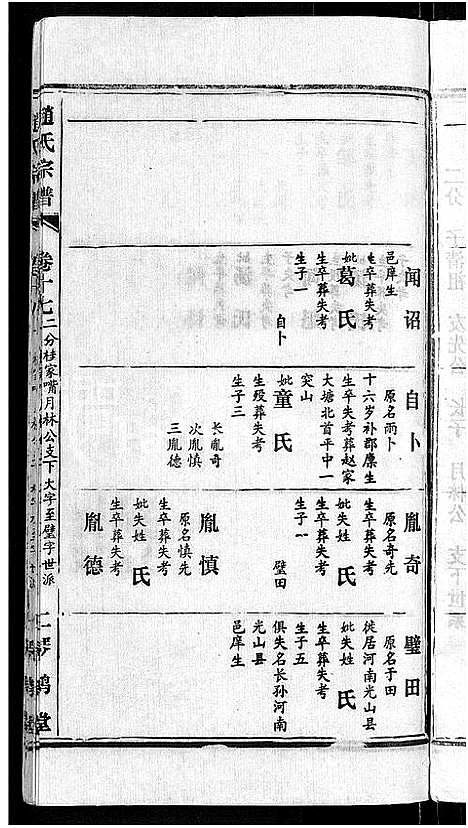 闻诏
邑庠生
生卒葬失考
妣葛氏
生卒葬失考
生子一
自卜
自卜
原名雨卜
十六岁补郡廩生
生卒失考葬赵家
大塘北首平中一
突山
妣童氏
生殁葬失考
生子三
长胤奇
次胤慎
三胤德
胤奇
原名奇先
生卒葬失考
妣失姓氏
生卒葬失考
生子一
璧田
胤慎
原名慎先
生卒葬失考
妣失姓氏
生卒葬失考
胤德
璧田
原名于田
徙居河南光山县
妣失姓氏
生卒葬失考
生子五
俱失名长孙河南
光山县
邑庠生
趙氏宗譜
卷十七
二分桂家嘴月林公支下大字至璧字世派
琴鹤堂